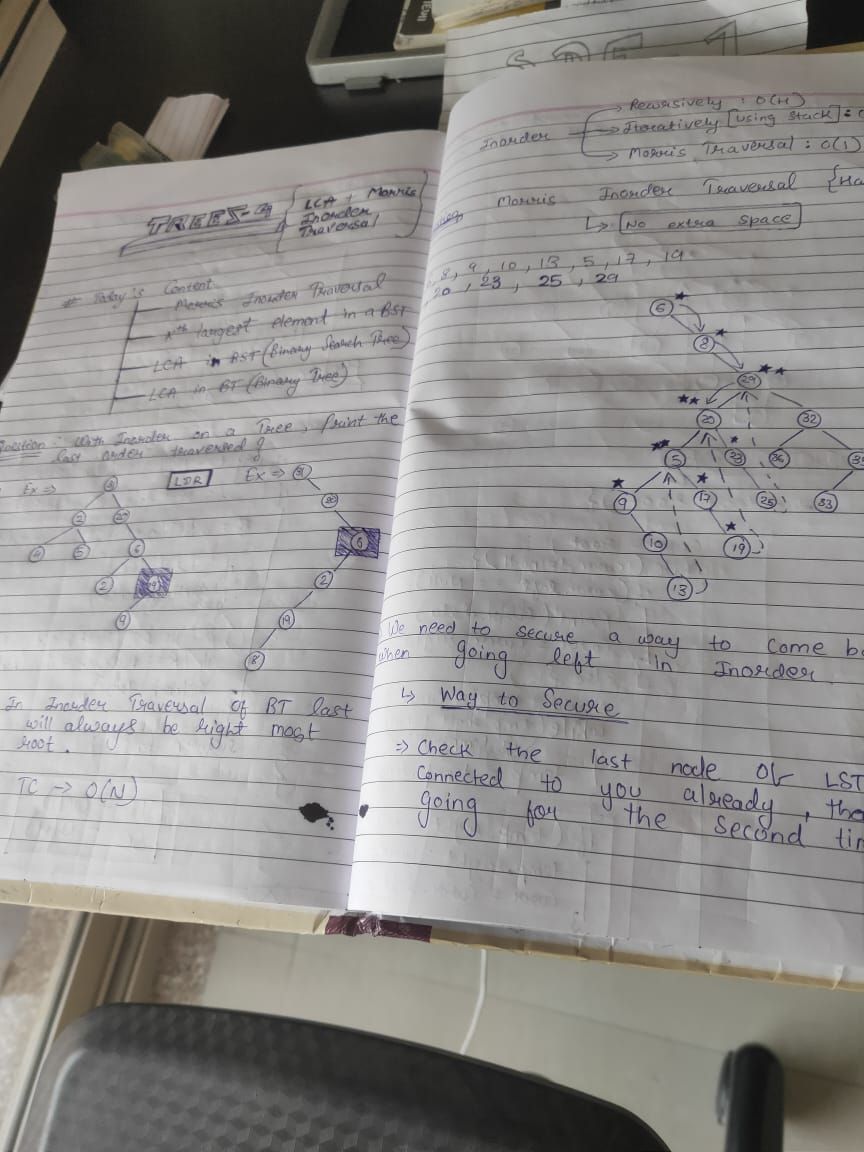 TREES-4 { LCA + Morris
Inorder
Traversal }
# Today's Content
Morris Inorder Traversal
kth largest element in a BST
LCA in BST (Binary Search Tree)
LCA in BT (Binary Tree)
Question: With Inorder on a Tree, Print the
last order traversed?
Ex => LDR Ex =>
2
4 5 6
2 9
9
20
6
2
19
8
In Inorder Traversal of BT last
will always be right most
root.
TC -> O(N)
SDE-1
Recursively : O(H)
Inorder -> Iteratively [using stack] :
-> Morris Traversal : O(1)
Morris Inorder Traversal
↳ No extra space
8, 9, 10, 13, 5, 17, 19
20, 23, 25, 29
6
8
29
20 32
5 23 36
9 17 25 33
10 19
13
We need to secure a way to come
when going left in Inorder
↳ Way to Secure
=> Check the last node of LST
Connected to you already,
going for the second